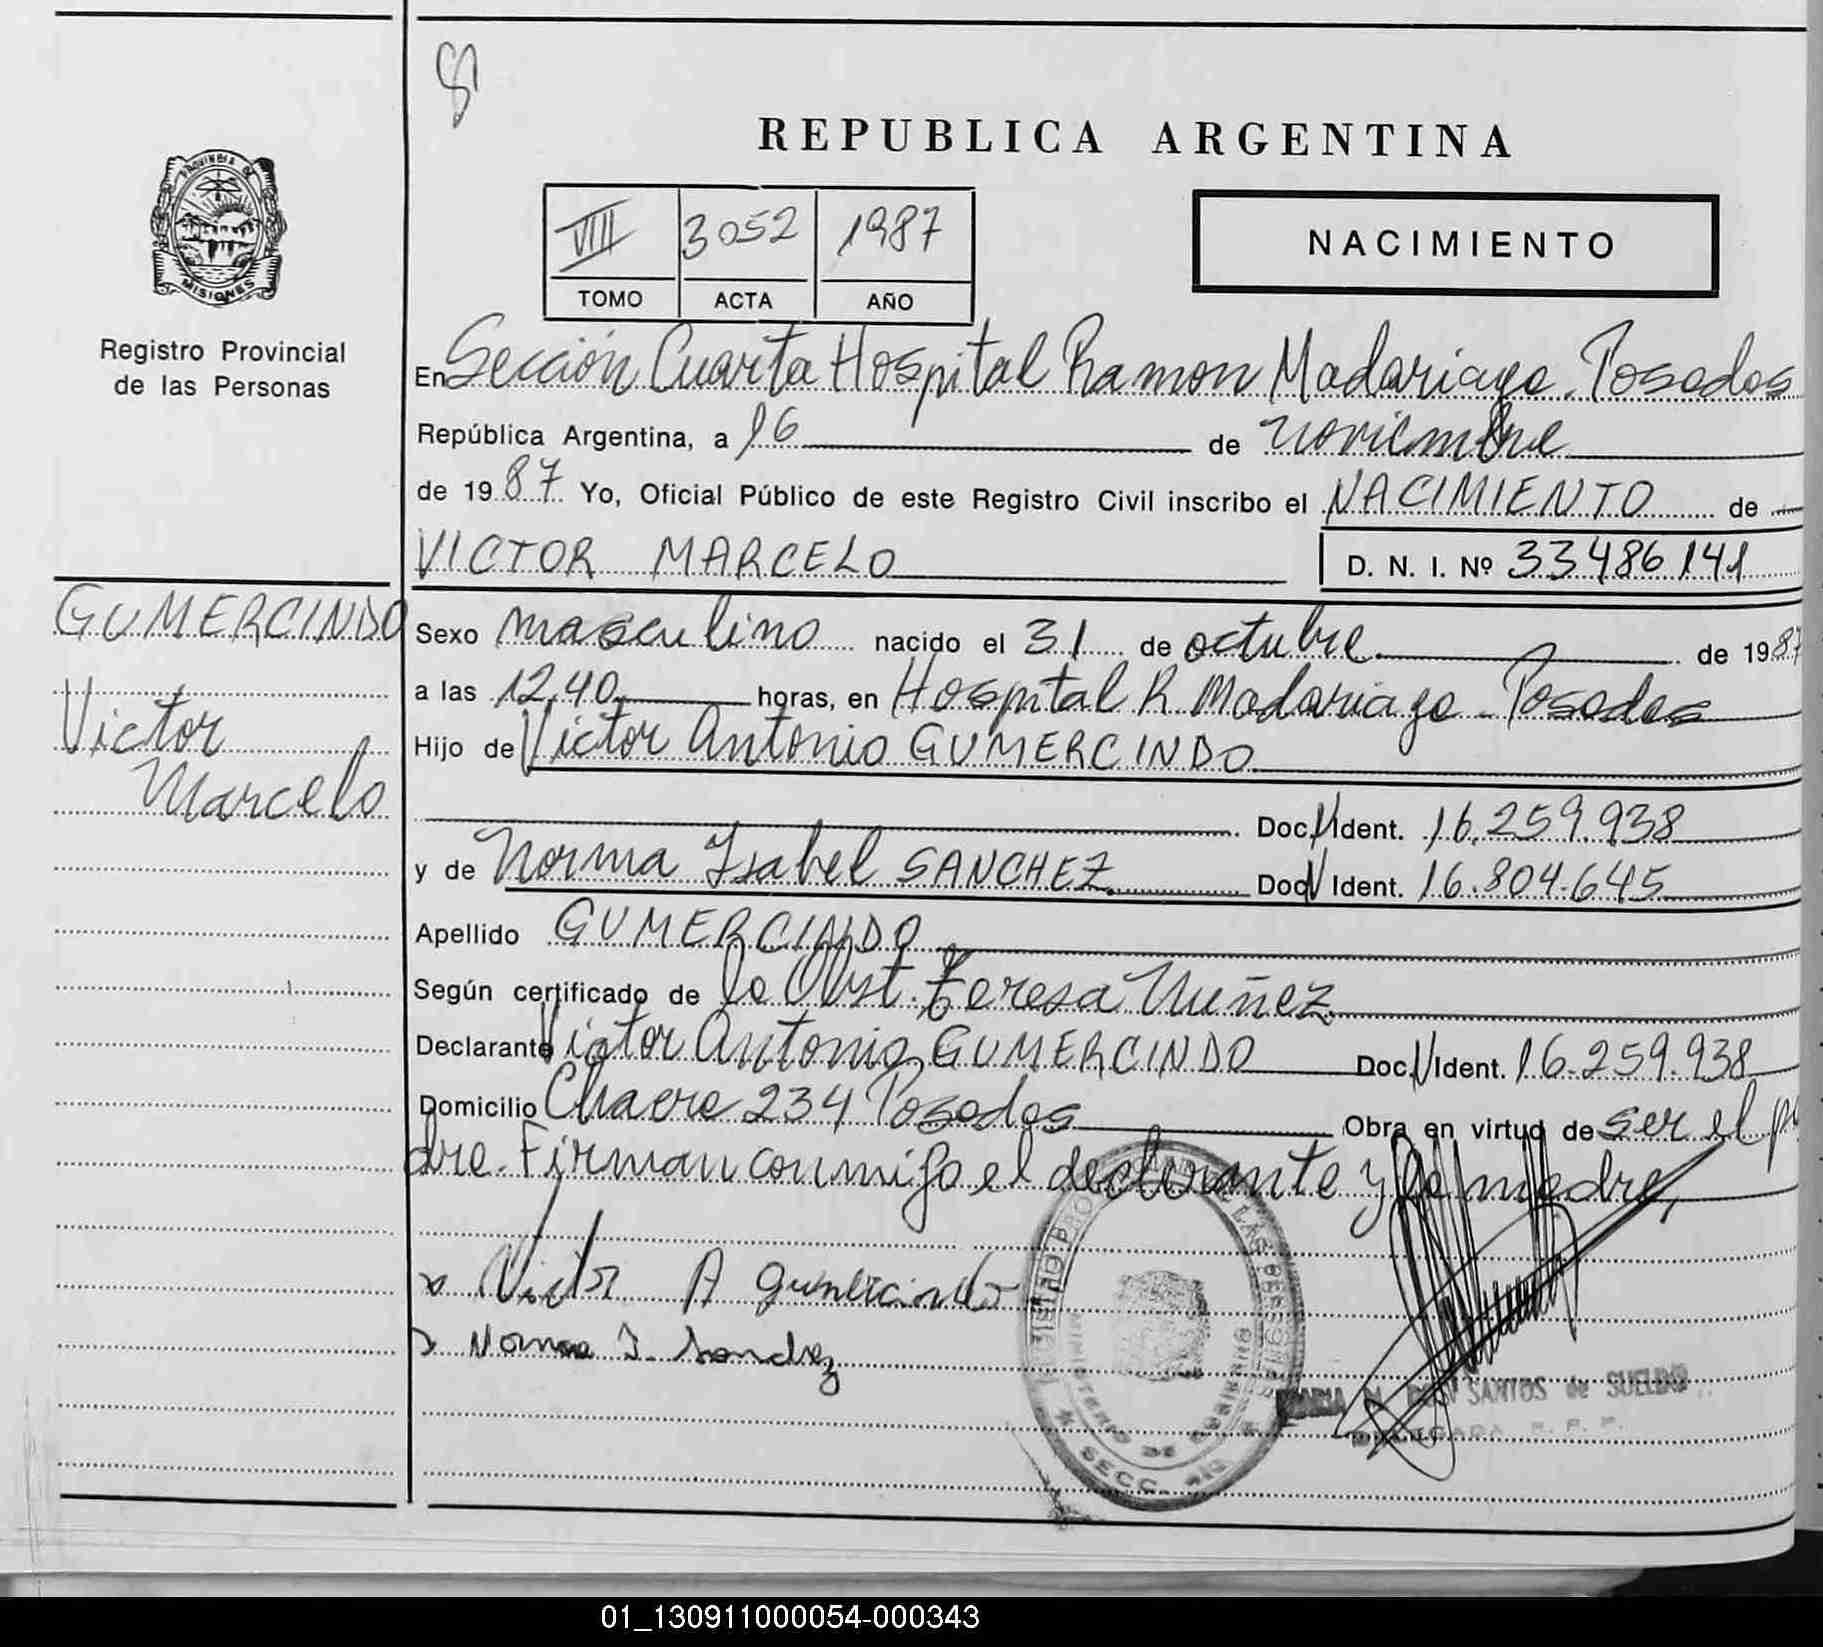 REPUBLICA ARGENTINA
VIII 3052 1987
TOMO ACTA AÑO
NACIMIENTO
PROVINCIA DE
MISIONES
Registro Provincial
de las Personas
GUMERCINDO
Victor
Marcelo
En Sección Cuarta Hospital Ramon Madariaga. Posadas
República Argentina, a 16 de noviembre
de 1987 Yo, Oficial Público de este Registro Civil inscribo el NACIMIENTO de
VICTOR MARCELO D. N. I. Nº 33486141
Sexo masculino nacido el 31 de octubre de 1987
a las 12,40 horas, en Hospital R. Madariaga - Posadas
Hijo de Victor Antonio GUMERCINDO
Doc. N Ident. 16.259.938
y de Norma Isabel SANCHEZ Doc. N Ident. 16.804.645
Apellido GUMERCINDO
Según certificado de la Obst. Teresa Nuñez
Declarante Victor Antonio GUMERCINDO Doc. N Ident. 16.259.938
Domicilio Chacra 234 Posadas Obra en virtud de ser el pa
dre. Firman conmigo el declarante y la madre,
Victor A Gumercindo
Norma I. Sanchez
SANTOS de SUELDO
SECC.
01_130911000054-000343